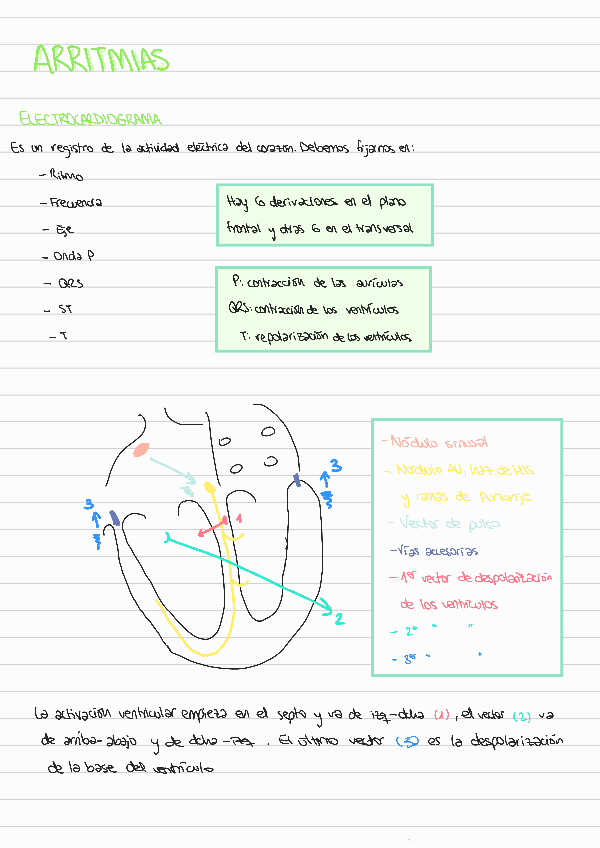 ARRITMIAS
ELECTROCARDIOGRAMA
Es un registro de la actividad eléctrica del corazón. Debemos fijarnos en:
- Ritmo
- Frecuencia
- Eje
- Onda P
- QRS
- ST
- T
Hay 6 derivaciones en el plano
frontal y otras 6 en el transversal
P: contracción de las aurículas
QRS: contracción de los ventrículos
T: repolarización de los ventrículos
3
3
1
2
- Nódulo sinusal
- Nódulo AV, Haz de His
y ramas de Purkinje
- Vector de pulso
- Vías accesorias
- 1er vector de despolarización
de los ventrículos
- 2º " "
- 3er " "
La activación ventricular empieza en el septo y va de izq-dcha (1), el vector (2) va
de arriba-abajo y de dcha-izq. El último vector (3) es la despolarización
de la base del ventrículo